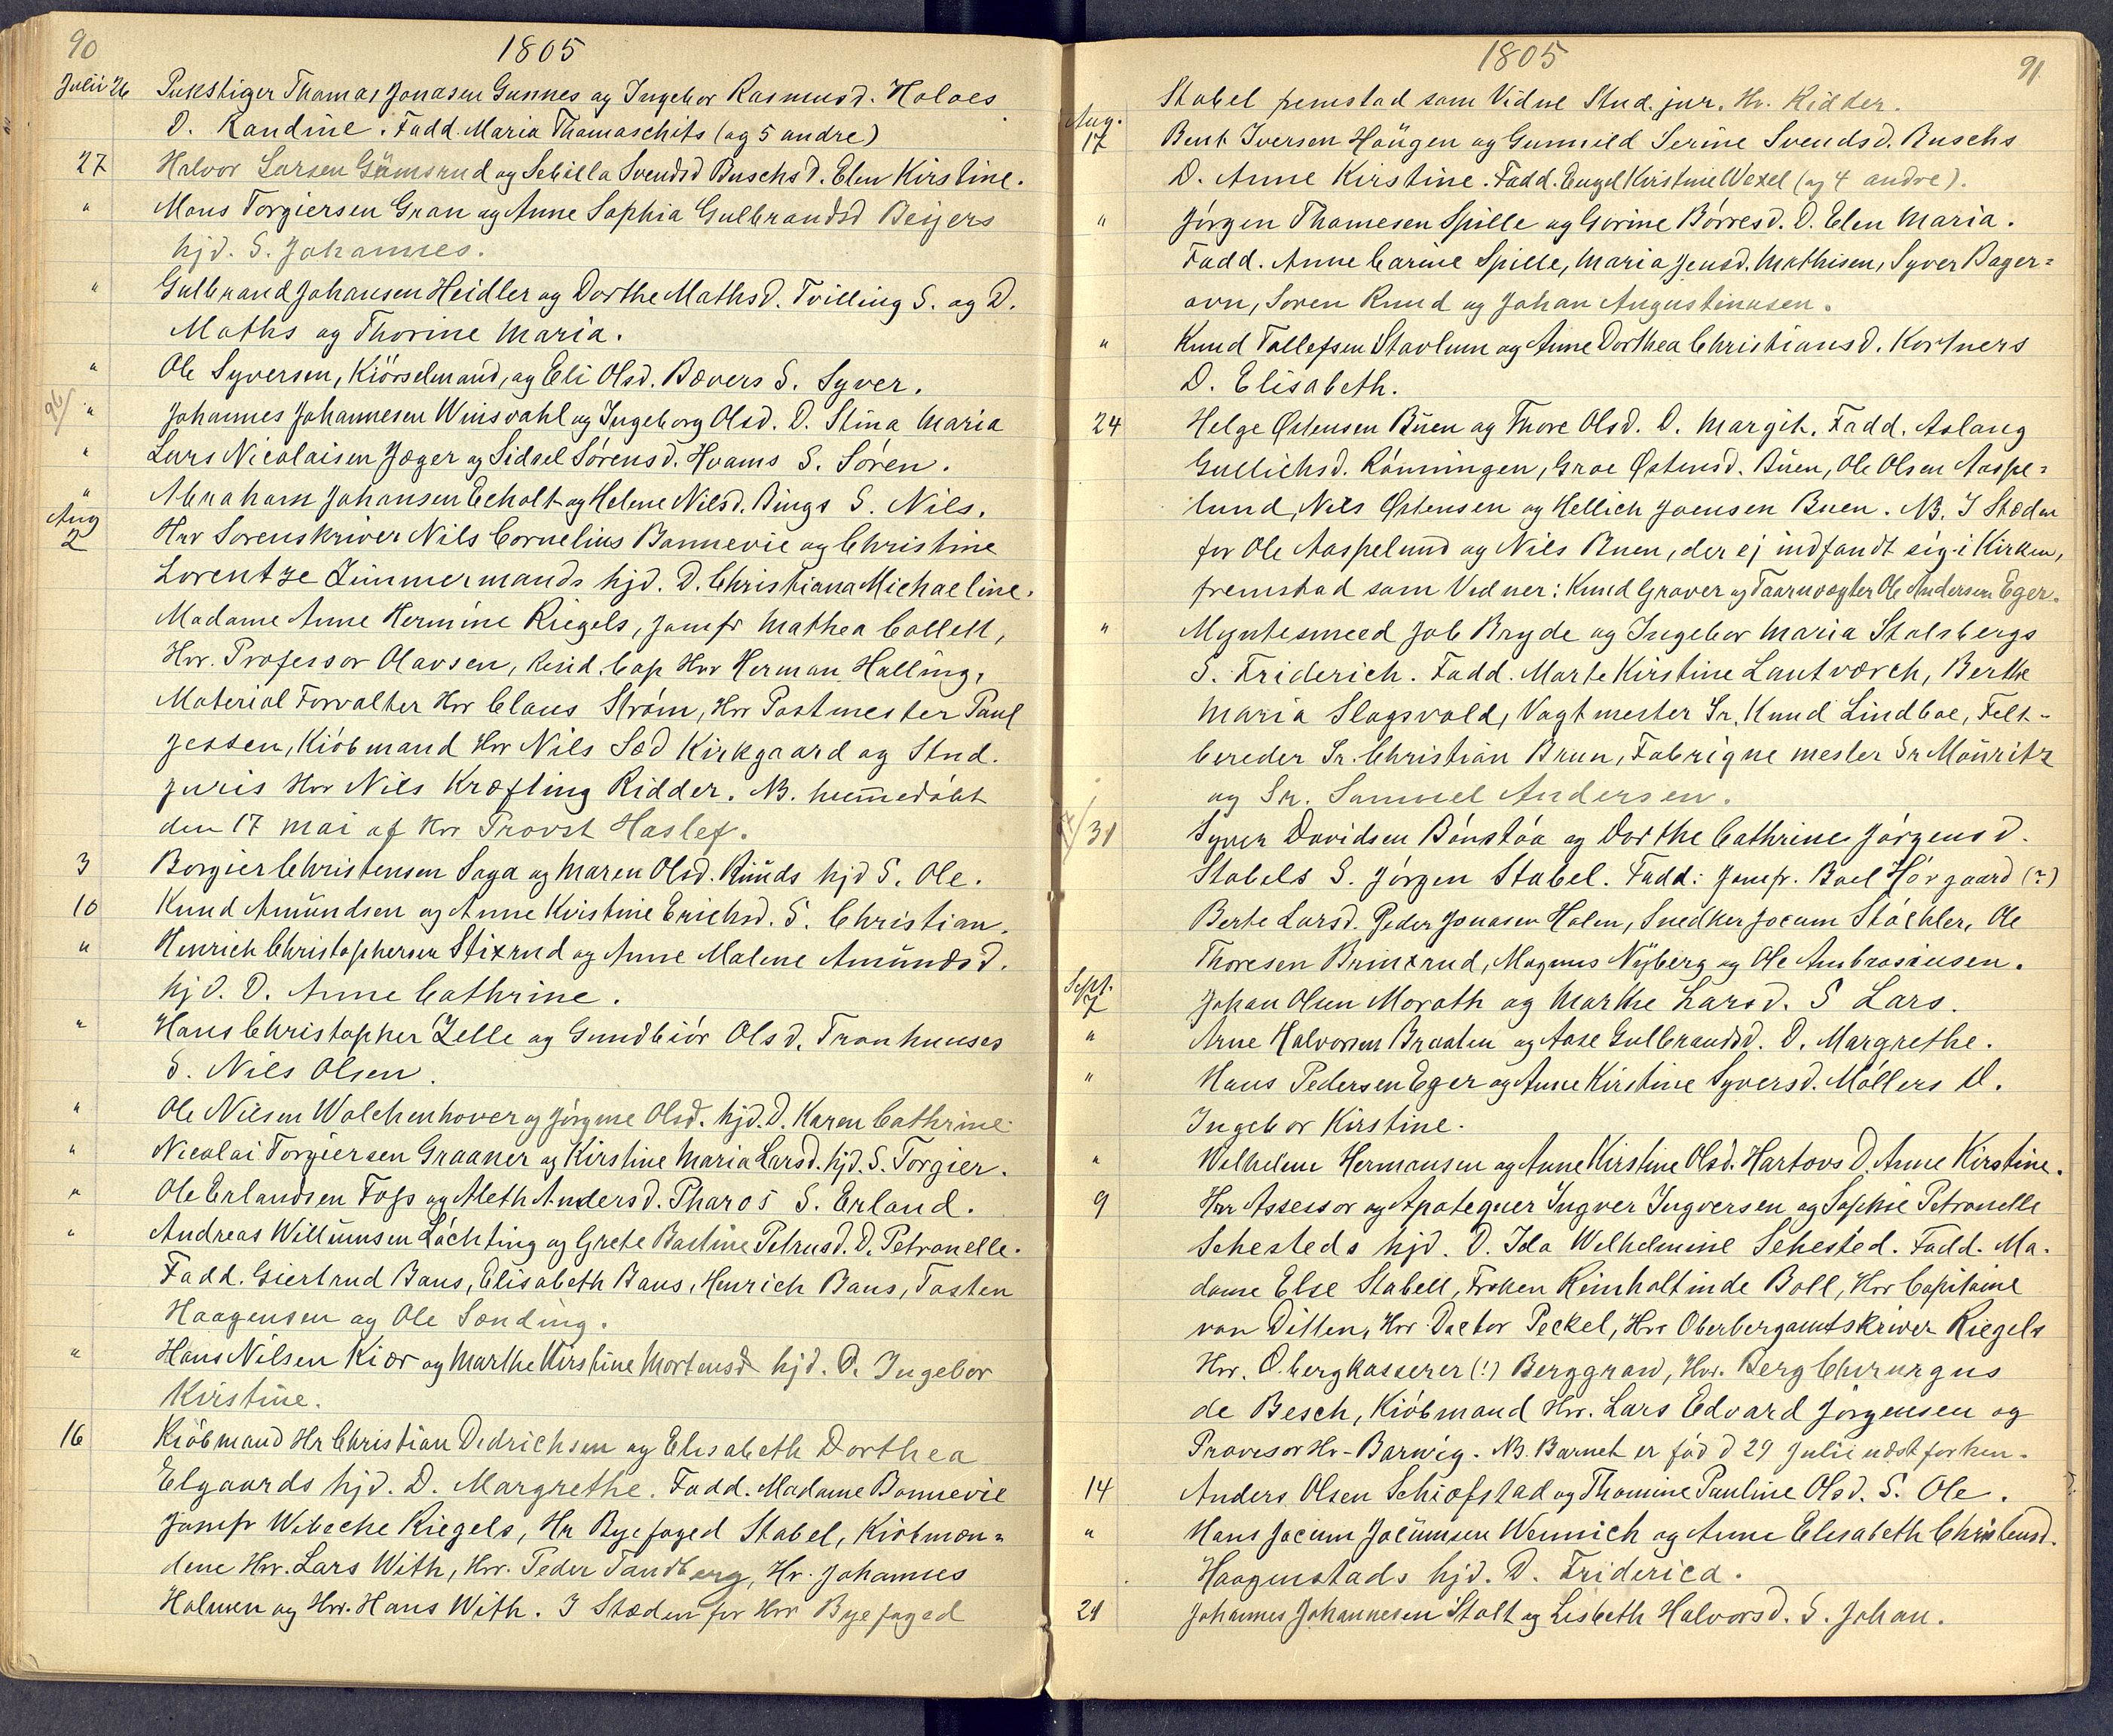 90
1805
Julii 26 Pukstiger Thomas Jonasen Gunnes og Ingebor Rasmusd. Holaes
D. Randine. Fadd. Maria Thomaschits (og 5 andre)
27 Halvor Larsen Gämsrud og Sebilla Svendsd Buschs D. Elen Kirstine.
" Mons Torgiersen Gran og Anne Sophia Gulbrandsd Beijers
hjd. S. Johannes.
" Gulbrand Johansen Heidler og Dorthe Mathsd. Tvilling S. og D.
Maths og Thorine Maria.
" Ole Syversen, Kiörselmand, og Eli Olsd. Bævers S. Syver.
26/ " Johannes Johannesen Winsvahl og Ingeborg Olsd. D. Stina Maria
" Lars Nicolaisen Jæger og Sidsel Sörensd. Hvams S. Sören.
" Abraham Johansen Echolt og Helene Nilsd. Bings S. Nils.
Aug
2 Hrr Sorenskriver Nils Cornelius Bonnevie og Christine
Lorentze Zimmermands hjd. D. Christiana Michaeline.
Madame Anne Hermine Riegels, Jomfr Mathea Collett,
Hrr. Professor Olavsen, Resid. Cap Hrr Herman Halling,
Material Forvalter Hrr Claus Ström, Hrr Postmester Paul
Jessen, Kiöbmand Hrr Nils Sæd Kirkgaard og Stud.
juris Hrr Nils Kræfting Ridder. NB. hiem̅edöbt
den 17 mai af Hrr Provst Haslef.
3 Borgier Christensen Saga og Maren Olsd. Ruuds hjd S. Ole.
10 Knud Amundsen og Anne Kirstine Erichsd. S. Christian.
" Henrich Christophersen Stixrud og Anne Malene Amundsd.
hjd. D. Anne Cathrine.
" Hans Christopher Zelle og Gundbiör Olsd. Tronhuuses
S. Nils Olsen.
" Ole Nilsen Walchenhover og Jörgine Olsd. hjd. D. Karen Cathrine
" Nicolai Torgiersen Graaner og Kirstine Maria Larsd. hjd. S. Torgier.
" Ole Erlandsen Foss og Aleth Andersd. Pharos S. Erland.
" Andreas Willumsen Löchting og Grete Bastine Petrusd. D. Petronelle.
Fadd. Giertrud Baus, Elisabeth Baus, Henrich Baus, Tosten
Haagensen og Ole Sonding.
" Hans Nilsen Kiær og Marthe Kirstine Mortensd hjd. D. Ingebor
Kirstine.
16 Kiöbmand Hr Christian Dedrichsen og Elisabeth Dorthea
Elgaards hjd. D. Margrethe. Fadd. Madame Bonnevie
Jomfr Wibeche Riegels, Hr Byefoged Stabel, Kiöbmæn=
dene Hrr. Lars With, Hrr. Peder Tandberg, Hr. Johannes
Holmen og Hrr. Hans With. I Stæden for Hrr Byefoged
1805
91
Stabel fremstod som Vidne Stud. jur. Hr. Ridder.
Aug.
17 Bent Iversen Haugen og Gunnild Serine Svendsd. Buschs
D. Anne Kirstine. Fadd. Engel Kirstine Wexel (og 4 andre).
" Jörgen Thomesen Spille og Gorine Börresd. D. Elen Maria.
Fadd. Anne Carine Spille, Maria Jensd. Mathisen, Syver Bager=
ovn, Soren Ruud og Johan Augustinusen.
" Knud Tollefsen Stavlum og Anne Dorthea Christiansd. Kortners
D. Elisabeth.
24 Helge Østensen Buen og Thore Olsd. D. Margit. Fadd. Aslaug
Gullichsd. Rönningen, Groe Østensd. Buen, Ole Olsen Aaspe=
lund, Nils Østensen og Hellich Joensen Buen. NB. I Stæden
for Ole Aaspelund og Nils Buen, der ej indfandt sig i Kirken,
fremstod som Vidner: Knud Graver og Taarnvogter Ole Andersen Eger.
" Myntesmed Job Bryde og Ingebor Maria Stolsbergs
S. Friderich. Fadd. Marte Kirstine Lantværch, Berthe
Maria Slogsvold, Vagtmester Sr. Knud Lindboe, Felt-
bereder Sr. Christian Brun, Fabriqne mester Sr Mauritz
og Sr. Samuel Andersen.
31 Syver Davidsen Bönstöa og Dorthe Cathrine Jörgensd.
Stabels S. Jörgen Stabel. Fadd: Jomfr. Boel Hörgaard (?)
Berte Larsd. Peder Jonasen Holen, Snedker Jocum Stöchler, Ole
Thoresen Brinxrud, Magnus Nyberg og Ole Ambrosiusen.
Sept.
7 Johan Olsen Morath og Marthe Larsd. S Lars.
" Arne Halvorsen Braaten og Aase Gulbrandsd. D. Margrethe.
" Hans Pedersen Eger og Anne Kirstine Syversd. Möllers D.
Ingebor Kirstine.
" Wilhelm Hermansen og Anne Kirstine Olsd. Hartovs D. Anne Kirstine.
9 Hrr Assessor og Apotequer Ingver Ingversen og Sophie Petronelle
Sehesteds hjd. D. Ida Wilhelmine Sehested. Fadd. Ma-
dame Else Stabell, Froken Reinholtinde Boll, Hrr Capitaine
von Ditten, Hrr Doctor Peckel, Hrr Oberbergamtskriver Riegels
Hrr. O. bergkasserer (!) Berggraw, Hrr. Berg Chirurgus
de Besch, Kiöbmand Hrr. Lars Edvard Jörgensen og
Provisor Hr. Barwig. NB. Barnet er föd d 29 Julii udst forhen.
14 Anders Olsen Schiøfstad og Thomine Pauline Olsd. S. Ole.
" Hans Jocum Jocumsen Wennich og Anne Elisabeth Christensd.
Haagenstads hjd. D. Friderica.
21 Johannes Johannesen Stolt og Lisbeth Halvorsd. S. Johan.